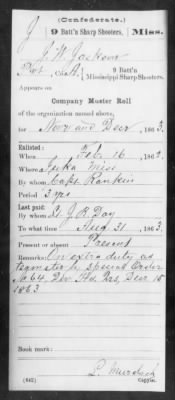 (Confederate.)
J 9 Batt'n Sharp Shooters, Miss.
J. W. Jackson
Pvt, Co. A, 9 Batt'n
Mississippi Sharp Shooters.
Appears on
Company Muster Roll
of the organization named above,
for Nov and Decr, 1863.
Enlisted:
When Feb 16, 1862.
Where Iuka Miss
By whom Capt. Rankin
Period 3 yrs
Last paid:
By whom J. R. Day
To what time Aug 31, 1863.
Present or absent Present
Remarks: On extra duty as
teamster by Special Order
No 64, Div. Hd. Qrs, Decr 15
1863
Book mark:
Murdoch
(642) Copyist.